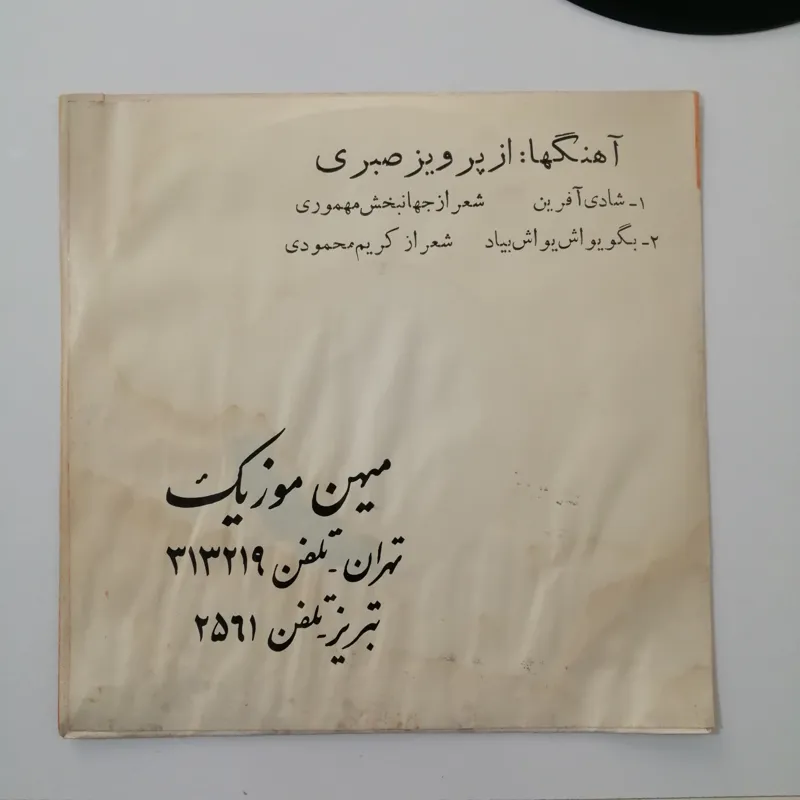 آهنگها: از پرویز صبری
۱ـ شادی آفرین شعر از جهانبخش مهموری
۲ـ بگو یواش یواش بیاد شعر از کریم محمودی
میهن موزیک
تهران ـ تلفن ۳۱۳۲۱۹
تبریز ـ تلفن ۲۵۶۱